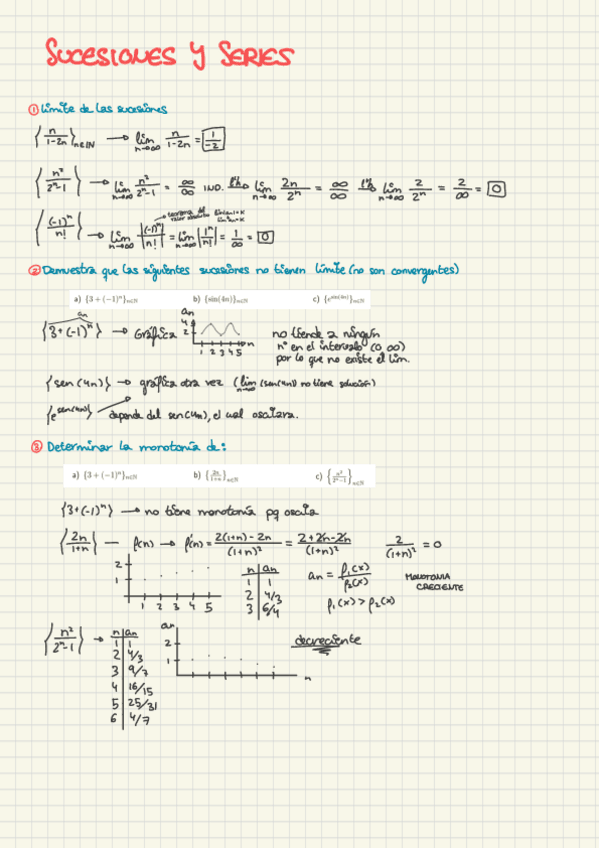 SUCESIONES Y SERIES
① Límite de las sucesiones
{n/(1-2n)}n∈IN → lim n→∞ n/(1-2n) = 1/-2
{n²/(2ⁿ-1)} → lim n→∞ n²/(2ⁿ-1) = ∞/∞ IND. L'H lim n→∞ 2n/2ⁿ = ∞/∞ L'H lim n→∞ 2/2ⁿ = 2/∞ = 0
teorema del valor absoluto
{(-1)ⁿ/n!} → lim n→∞ |(-1)ⁿ/n!| = lim n→∞ |1ⁿ/n!| = 1/∞ = 0
② Demuestra que las siguientes sucesiones no tienen límite (no son convergentes)
a) {3 + (−1)ⁿ}n∈N b) {sin(4n)}n∈N c) {e^sin(4n)}n∈N
an
{3+(-1)ⁿ} → Gráfica an 4 2 1 2 3 4 5 n
no tiende a ningún
nº en el intervalo (0 ∞)
por lo que no existe el lim.
{sen(4n)} → gráfica otra vez (lim n→∞ (sen(4n)) no tiene solución)
{e^sen(4n)} depende del sen(4n), el cual oscilara.
③ Determinar la monotonía de:
a) {3 + (−1)ⁿ}n∈N b) {2n/(1+n)}n∈N c) {n²/(2ⁿ−1)}n∈N
{3+(-1)ⁿ} → no tiene monotonía pq oscila
{2n/(1+n)} — f(n) → f'(n) = (2(1+n) - 2n)/(1+n)² = (2+2n-2n)/(1+n)² 2/(1+n)² = 0
2 1 1 2 3 4 5
n an
1 1
2 4/3
3 6/4
an = f₁(x)/f₂(x)
f₁(x) > f₂(x)
MONOTONIA
CRECIENTE
{n²/(2ⁿ-1)} → n an
1 1
2 4/3
3 9/7
4 16/15
5 25/31
6 4/7
an 2 1 n
decreciente